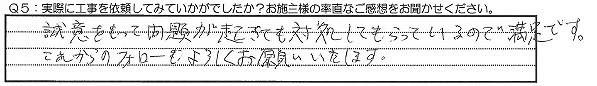 Q5:実際に工事を依頼してみていかがでしたか?お施主様の率直なご感想をお聞かせください。
誠意をもって問題が起きても対処してもらっているので満足です。
これからのフォローもよろしくお願いいたします。